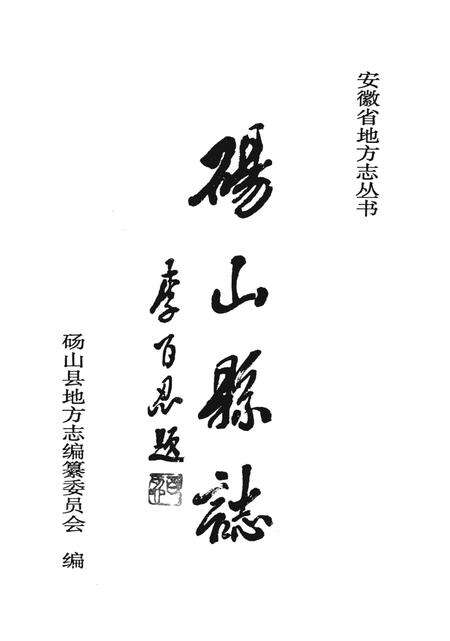 安徽省地方志丛书
碭山縣誌
李百忍题
砀山县地方志编纂委员会 编